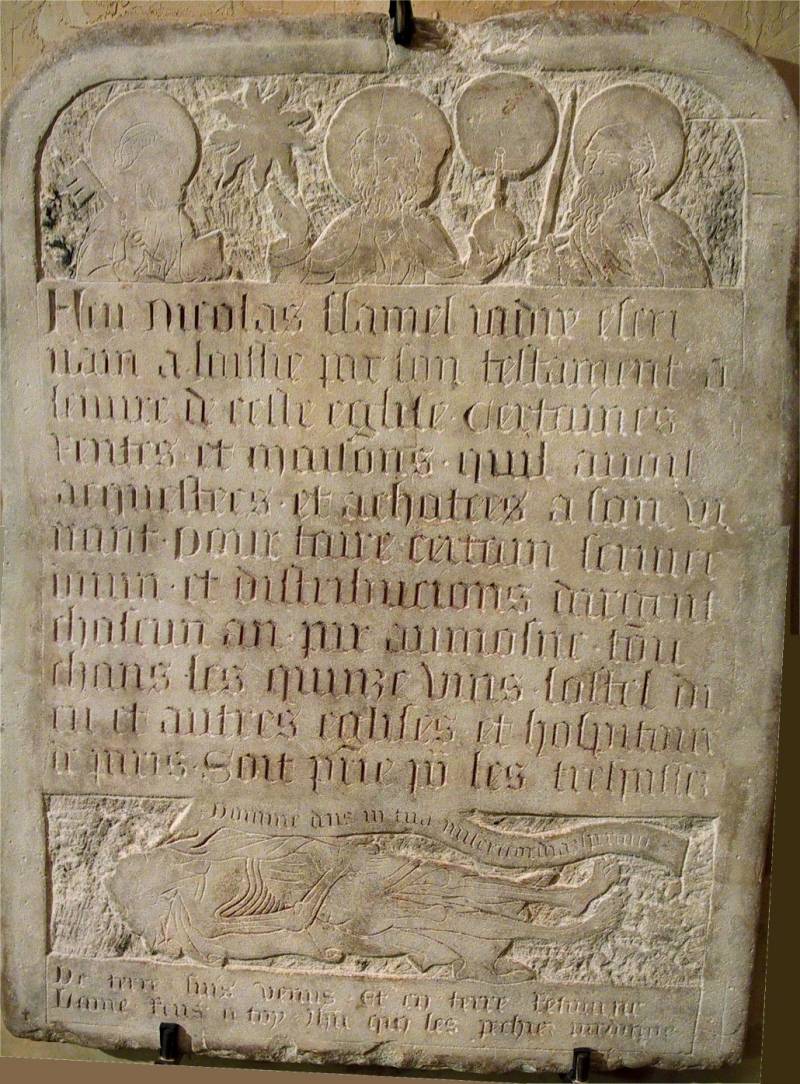 Feu nicolas flamel iadix escri
uain a laissie par son testament a
leuure de ceste eglise certaines
rentes et maisons quil auoit
acquestees et achatees a son vi
uant pour faire certain seruice
diuin et distribucions dargent
chascun an par aumosne tou
chans les quinze vins lostel di
eu et autres eglises et hospitaux
a paris Soit prie po les trespasses
Domine deus in tua misericordia speraui
De terre suis venus et en terre retourne
Lame rens a toy qui les pechies pardonne